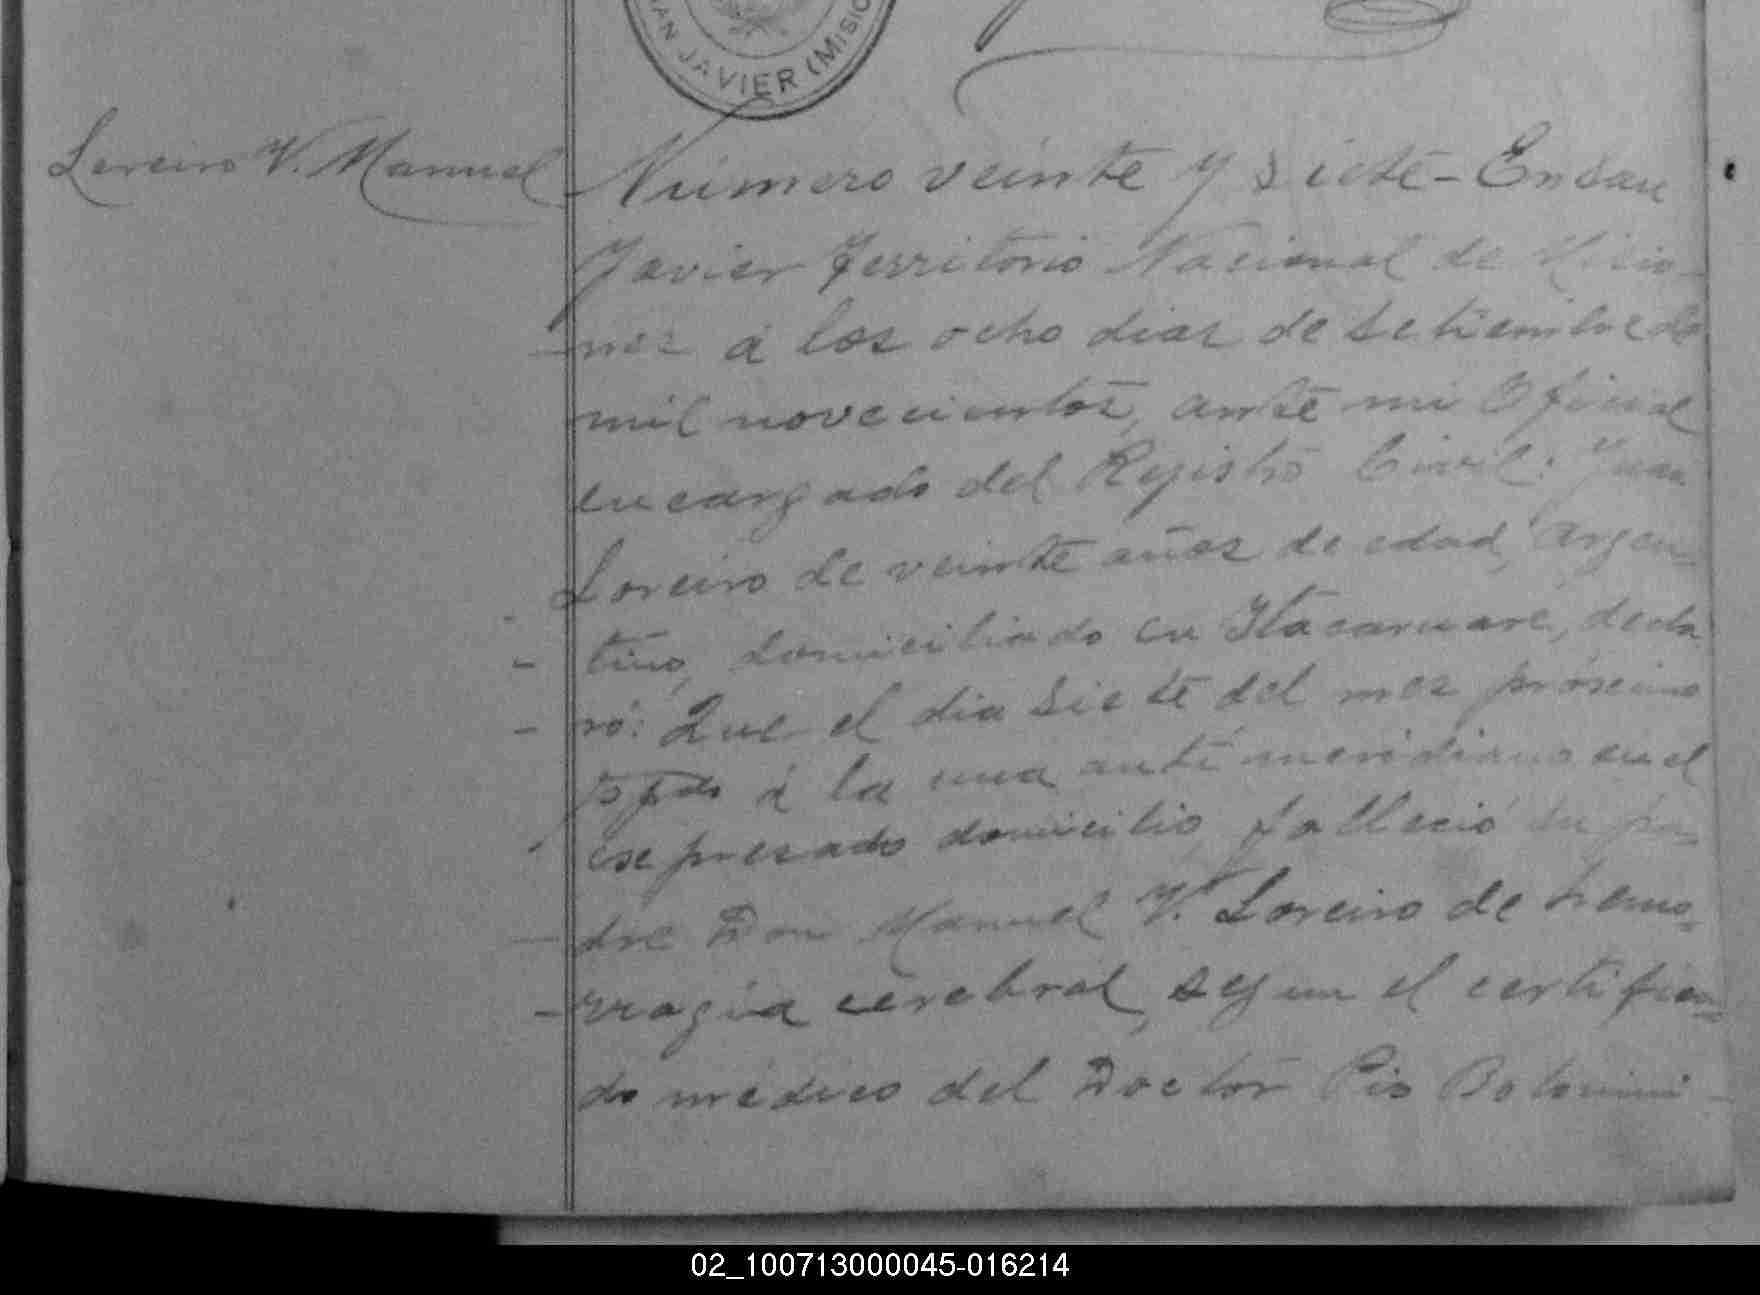 SAN JAVIER (MISIO
Loreiro V. Manuel
Número veinte y siete - En San
Javier Territorio Nacional de Misio-
-nes á los ocho dias de Setiembre de
mil novecientos, ante mi Oficial
encargado del Registro Civil: Juan
Loreiro de veinte años de edad, argen-
- tino, domiciliado en Itacaruaré, decla
- ró: Que el dia siete del mes prócsimo
ppdo á la una ante meridiano en el
esepresado domicilio, falleció su pa-
-dre Don Manuel V. Loreiro de hemo-
-rragia cerebral, segun el certifica-
do médico del Doctor Pio
02_100713000045-016214